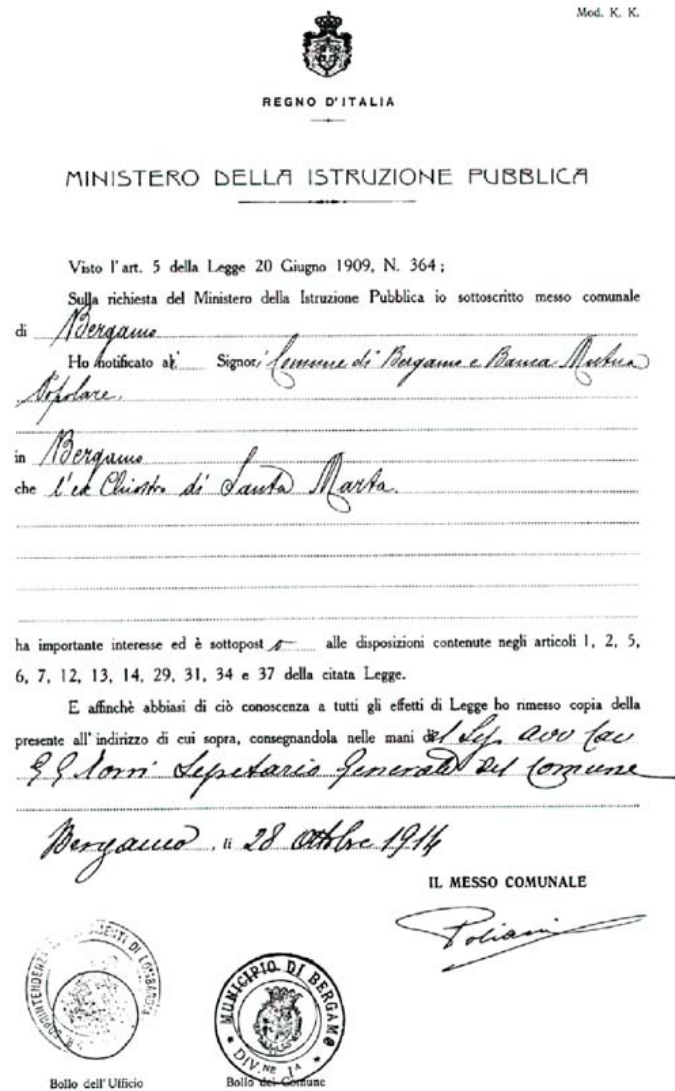 Mod. K. K.
REGNO D'ITALIA
MINISTERO DELLA ISTRUZIONE PUBBLICA
Visto l'art. 5 della Legge 20 Giugno 1909, N. 364;
Sulla richiesta del Ministero della Istruzione Pubblica io sottoscritto messo comunale
di Bergamo
Ho notificato ai Signori Comune di Bergamo e Banca Mutua
Popolare.
in Bergamo
che l'ex Chiostro di Santa Marta.
ha importante interesse ed è sottoposto alle disposizioni contenute negli articoli 1, 2, 5,
6, 7, 12, 13, 14, 29, 31, 34 e 37 della citata Legge.
E affinchè abbiasi di ciò conoscenza a tutti gli effetti di Legge ho rimesso copia della
presente all'indirizzo di cui sopra, consegnandola nelle mani del Sig. avv Cav
Segretario Generale del Comune
Bergamo, li 28 Ottobre 1914
IL MESSO COMUNALE
Poliani
MUNICIPIO DI BERGAMO
DIV.NE 1A
Bollo dell'Ufficio
Bollo del Comune